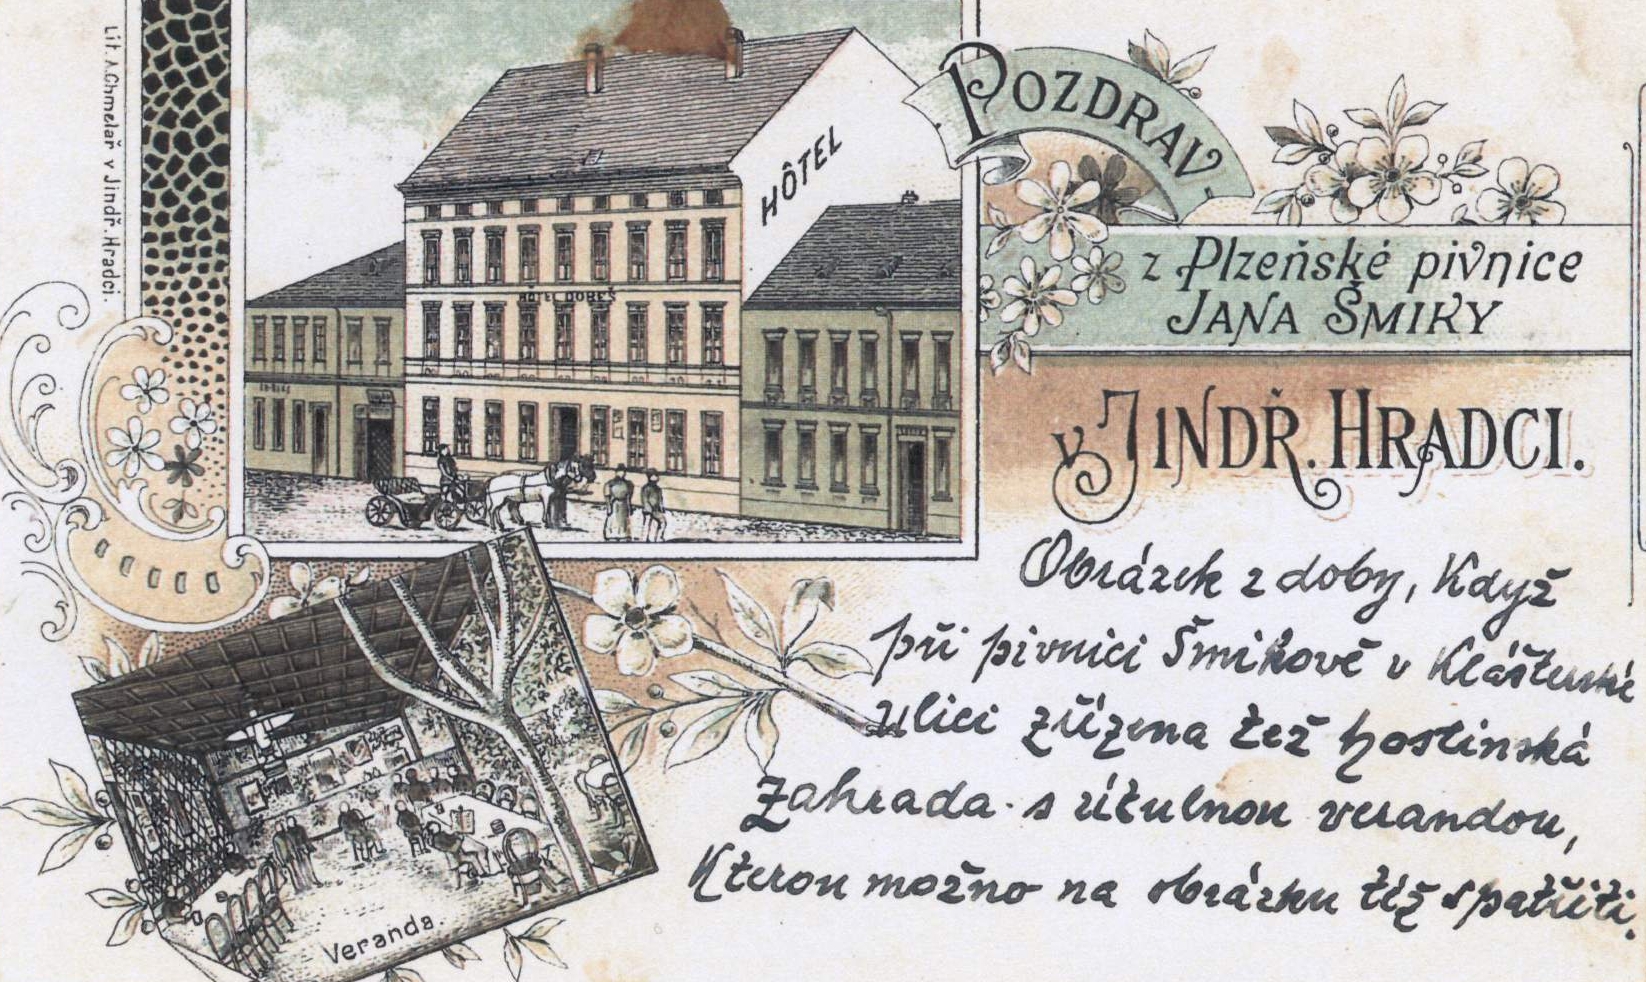 Lit. A. Chmelař v Jindř. Hradci.
HÔTEL
HÔTEL DOREŠ
POZDRAV
z Plzeňské pivnice
JANA ŠMIKY
v JINDŘ. HRADCI.
Obrázek z doby, když
při pivnici Šmikově v Klášterské
ulici zřízena též hostinská
zahrada s útulnou verandou,
kterou možno na obrázku též spatřiti.
Veranda.